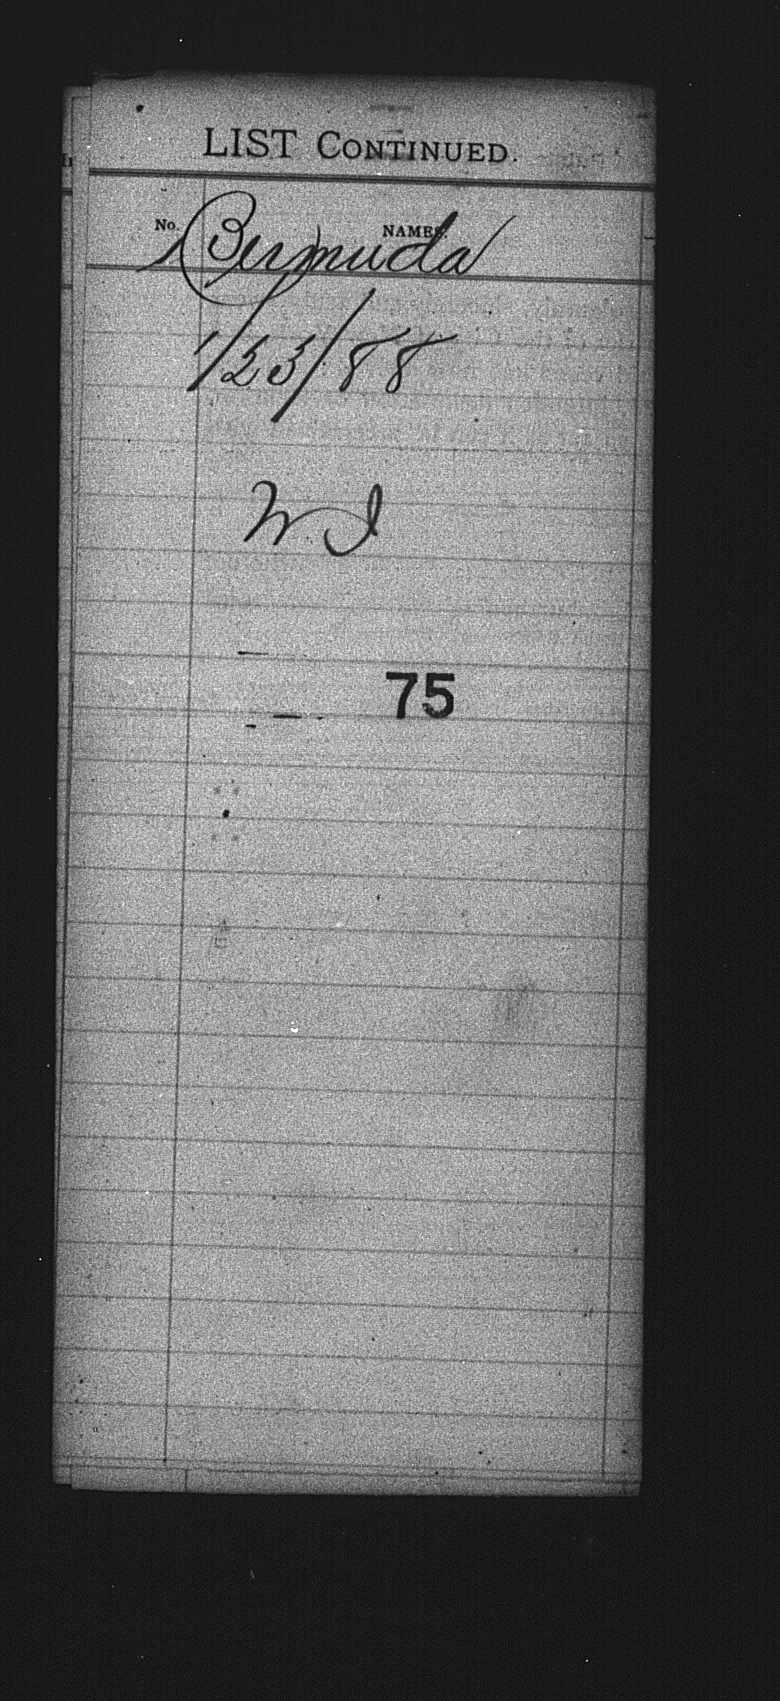 LIST CONTINUED.
No. NAMES.
Bermuda
1/23/88
W I
75